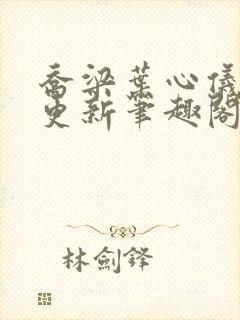 喬梁葉心儀
更新筆趣閣
林劍鋒